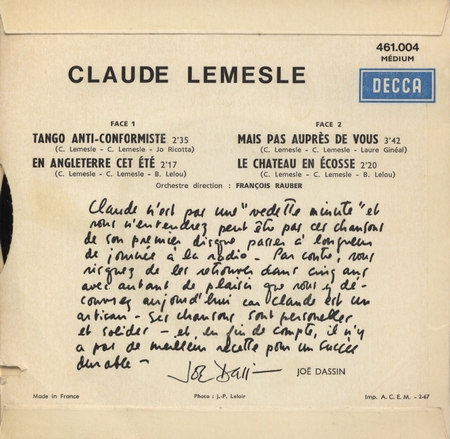 461.004
MÉDIUM
CLAUDE LEMESLE
DECCA
FACE 1
TANGO ANTI-CONFORMISTE 2'35
(C. Lemesle - C. Lemesle - Jo Ricotta)
EN ANGLETERRE CET ÉTÉ 2'17
(C. Lemesle - C. Lemesle - B. Lelou)
FACE 2
MAIS PAS AUPRÈS DE VOUS 3'42
(C. Lemesle - C. Lemesle - Laure Ginéal)
LE CHATEAU EN ÉCOSSE 2'20
(C. Lemesle - C. Lemesle - B. Lelou)
Orchestre direction : FRANÇOIS RAUBER
Claude n'est pas une "vedette minute" et
vous n'entendrez peut être pas ces chansons
de son premier disque passer à longueur
de journée à la radio - Par contre, vous
risquez de les retrouver dans cinq ans
avec autant de plaisir que vous y dé-
couvrez aujourd'hui car Claude est un
artisan - Ses chansons sont personnelles
et solides - et, en fin de compte, il n'y
a pas de meilleure recette pour un succès
durable -
Joe Dassin
JOË DASSIN
Made in France
Photo : J.-P. Leloir
Imp. A. C. E. M. - 3-67